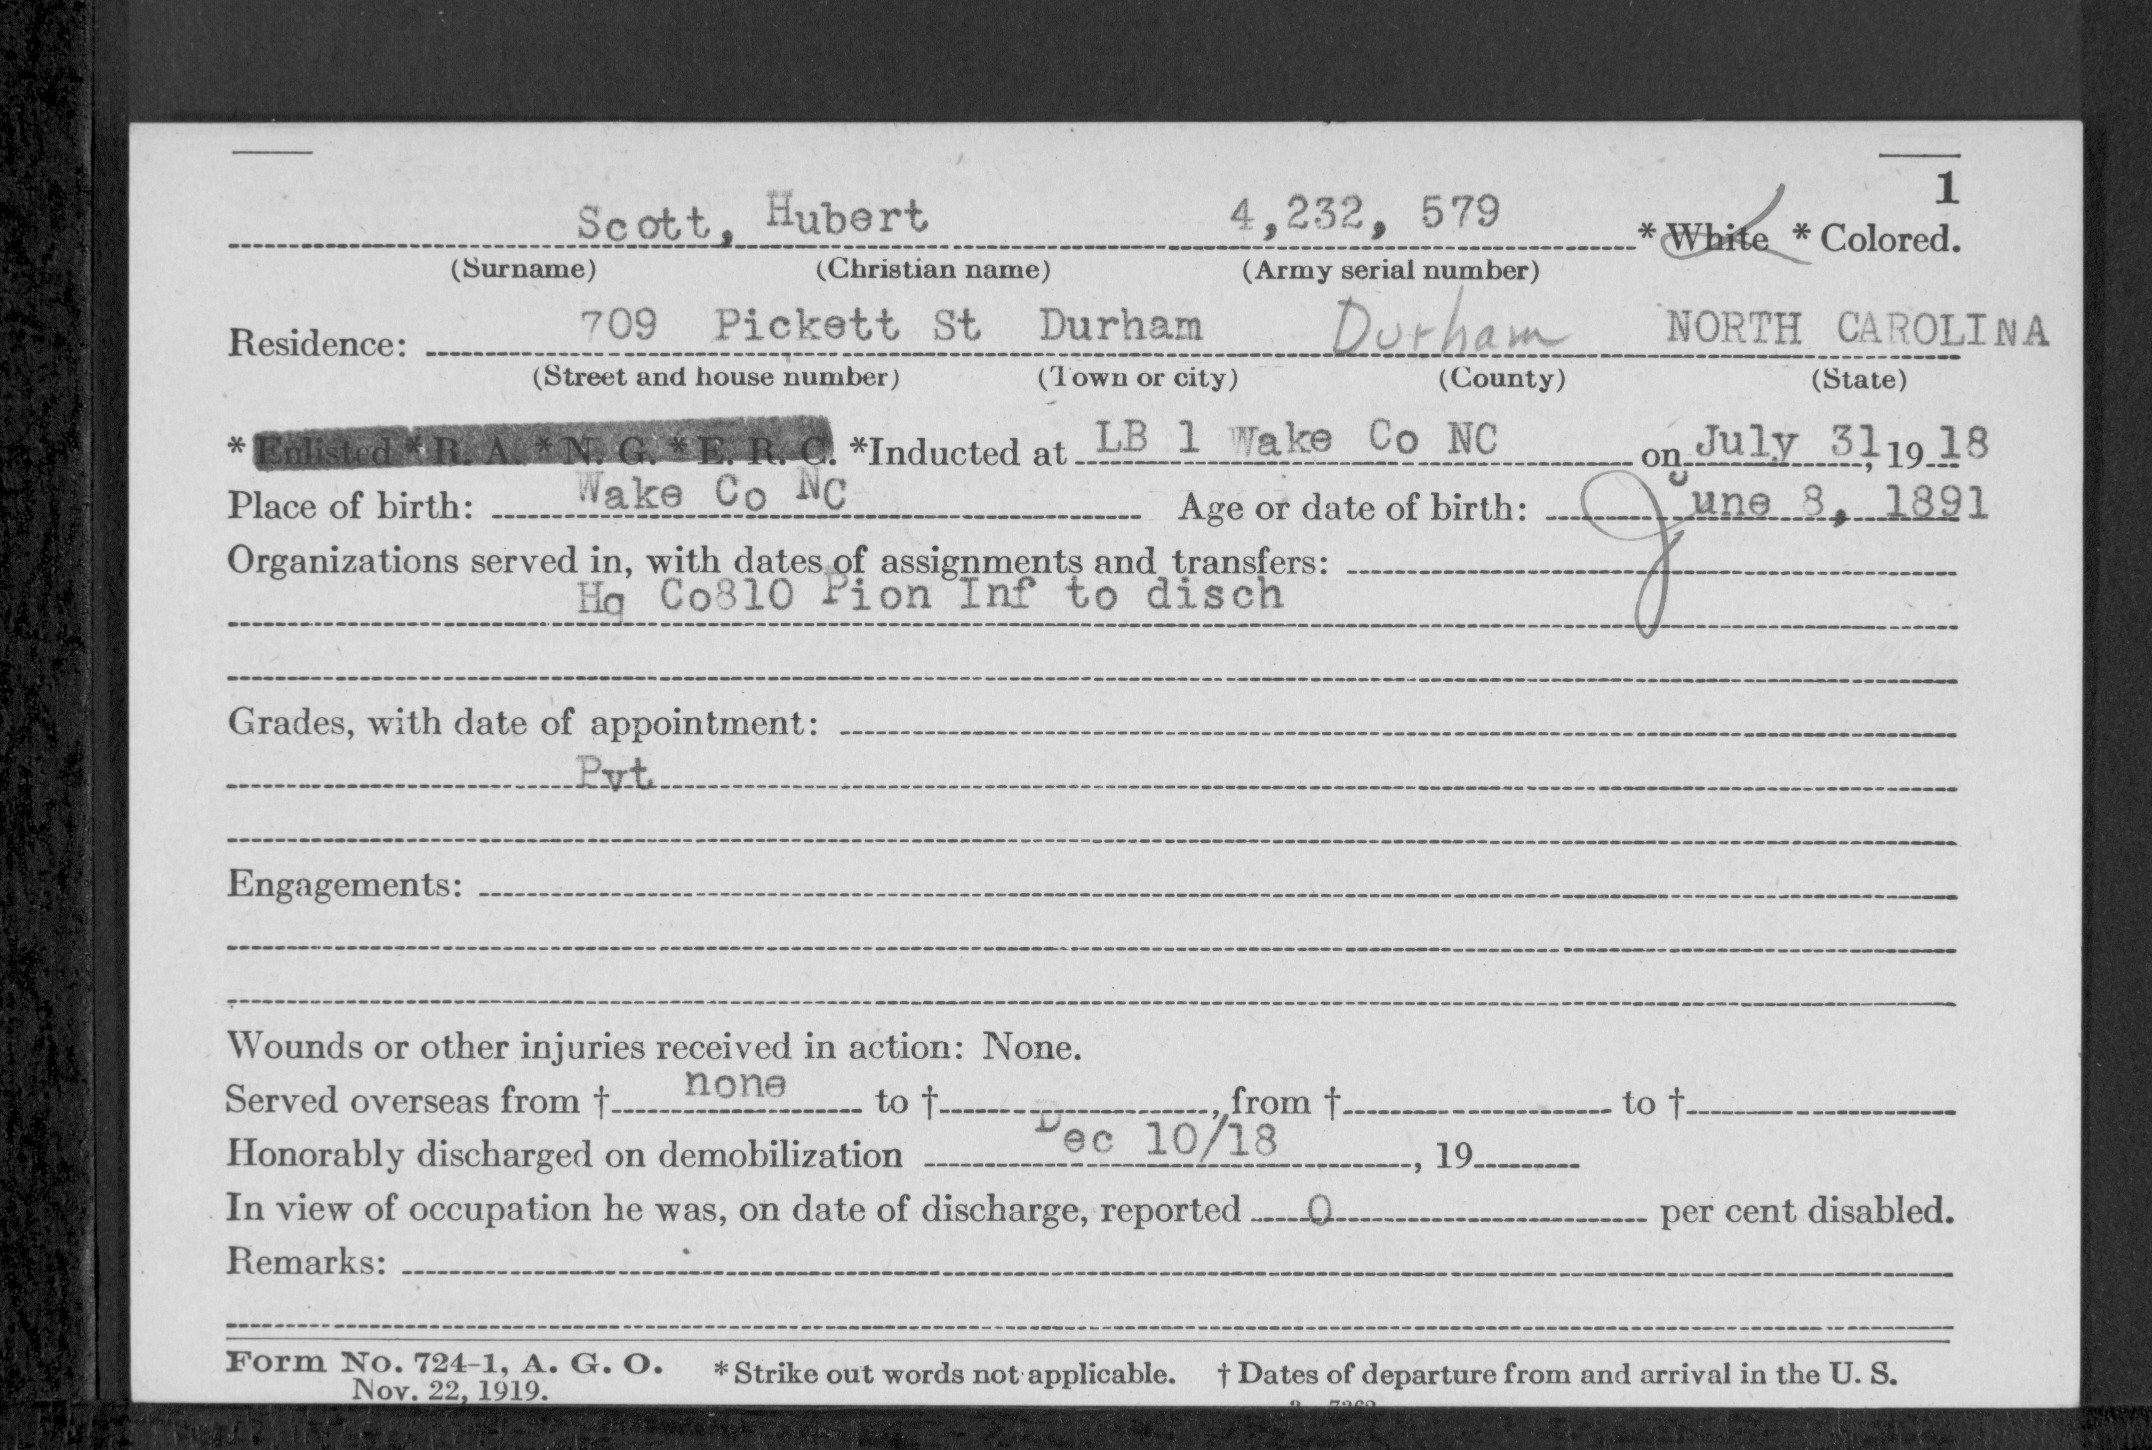 1
Scott, Hubert 4,232, 579 * White * Colored.
(Surname) (Christian name) (Army serial number)
Residence: 709 Pickett St Durham Durham NORTH CAROLINA
(Street and house number) (Town or city) (County) (State)
* Enlisted * R. A. * N. G. * E. R. C. *Inducted at LB 1 Wake Co NC on July 31, 19 18
Place of birth: Wake Co NC Age or date of birth: June 8, 1891
Organizations served in, with dates of assignments and transfers:
Hq Co810 Pion Inf to disch
Grades, with date of appointment:
Pvt
Engagements:
Wounds or other injuries received in action: None.
Served overseas from † none to † , from † to †
Honorably discharged on demobilization Dec 10/18 , 19
In view of occupation he was, on date of discharge, reported 0 per cent disabled.
Remarks:
Form No. 724-1, A. G. O. * Strike out words not applicable. † Dates of departure from and arrival in the U. S.
Nov. 22, 1919.